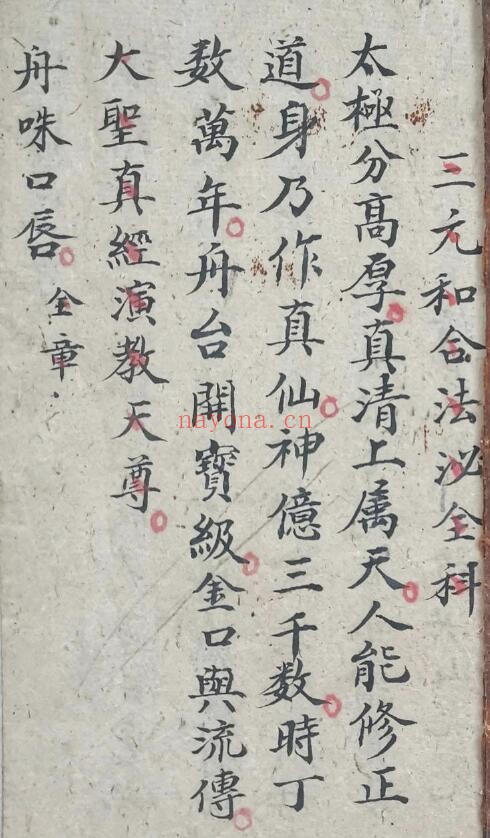 三元和合法泌全科
太極分高厚真清上属天人能修正
道身乃作真仙神億三千数時丁
数萬年舟台開寳級金口與流傳
大聖真經演教天尊
舟咮口唇 全章
nayona.cn